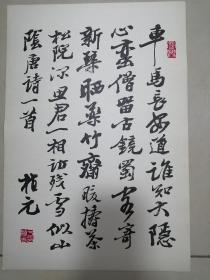 車馬長安道誰知大隱
心蠻僧留古鏡蜀客寄
新琴晒藥竹齋暖搗茶
松院深思君一相訪殘雪似山
陰唐詩一首 元